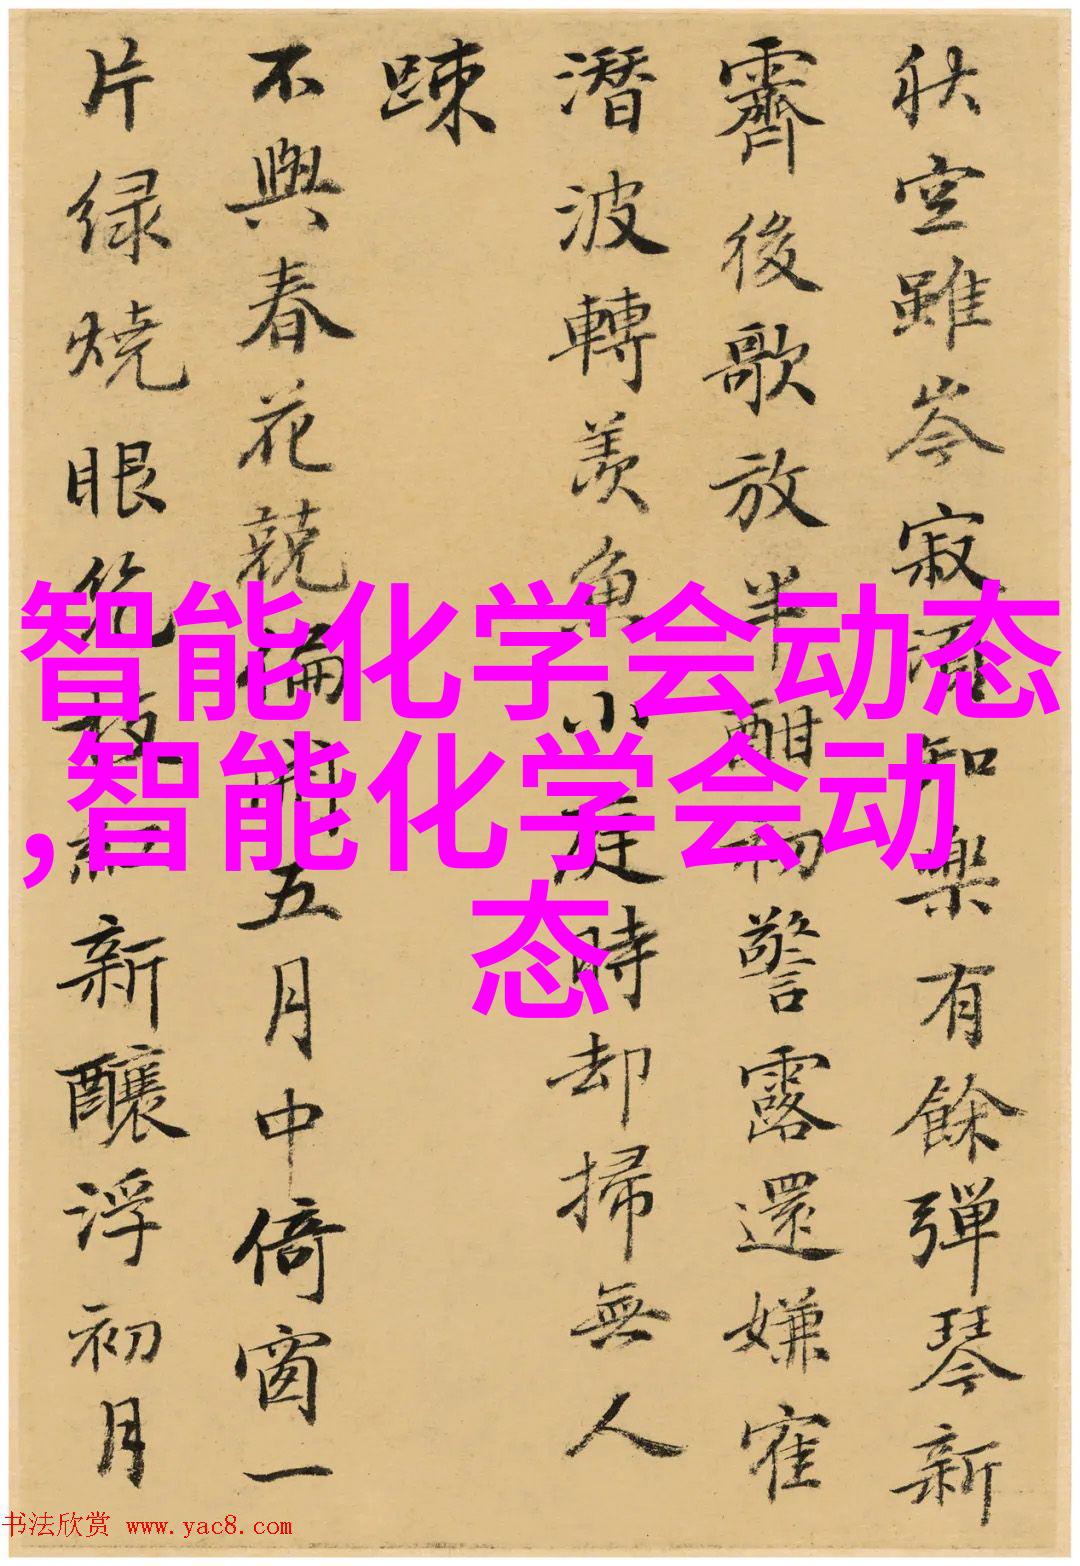 秋空雖岑寂酒知樂有餘彈琴新
霽後歌放半酣初警露還嫌寉
潛波轉羨魚小庭時却掃無人
踈
不與春花競偏明五月中倚窗一
片绿燒眼幾枝紅新釀浮初月
智能化学会动态
,智能化学会动
态
书法欣赏 www.yac8.com